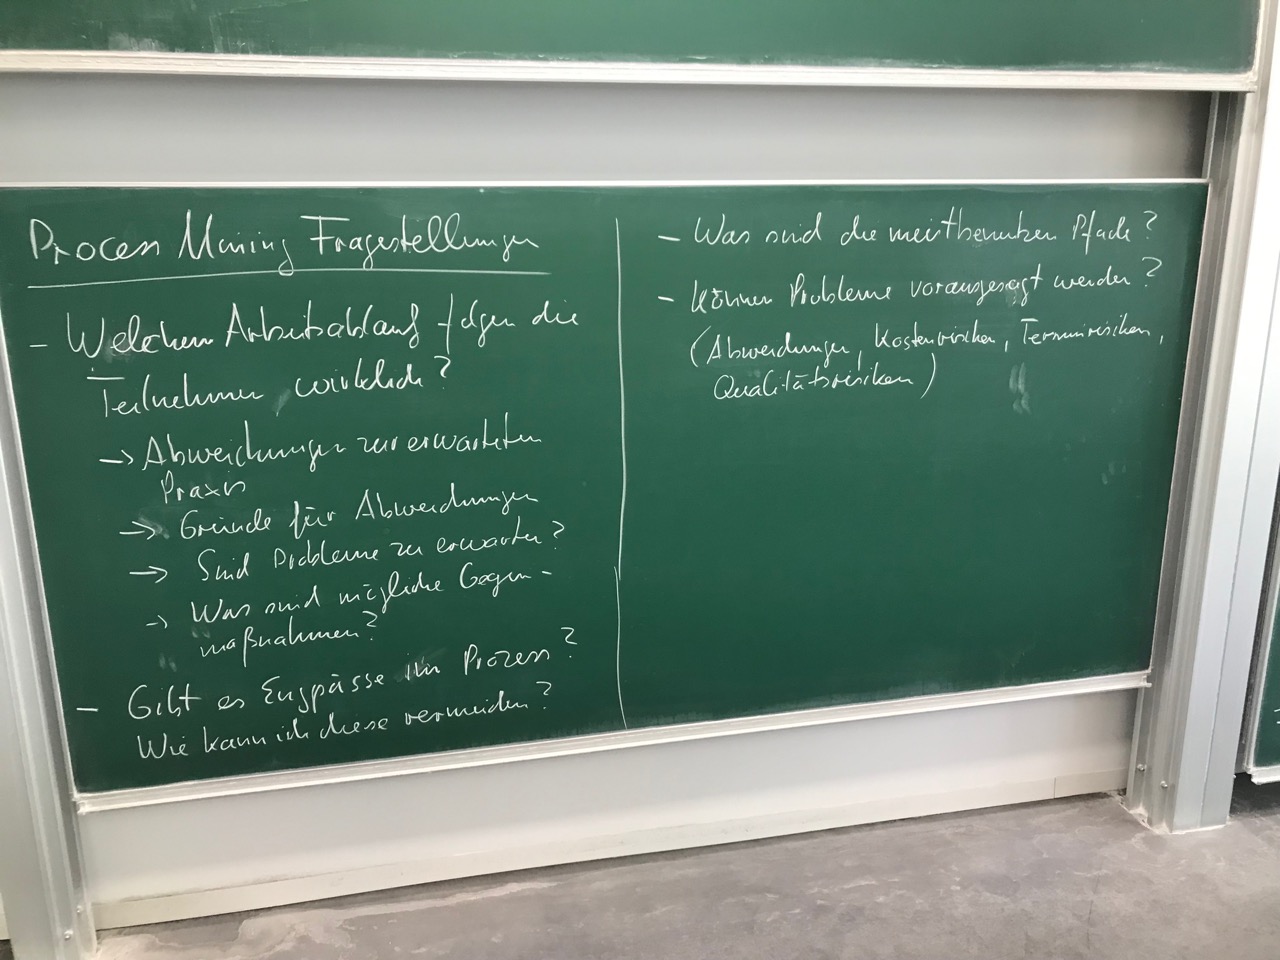 Process Mining Fragestellungen
- Welchem Arbeitsablauf folgen die
Teilnehmer wirklich?
-> Abweichungen zur erwarteten
Praxis
-> Gründe für Abweichungen
-> Sind Probleme zu erwarten?
-> Was sind mögliche Gegen-
maßnahmen?
- Gibt es Engpässe im Prozess?
Wie kann ich diese vermeiden?
- Was sind die meistbenutzten Pfade?
- Können Probleme vorausgesagt werden?
(Abweichungen, Kostenrisiken, Terminrisiken,
Qualitätsrisiken)